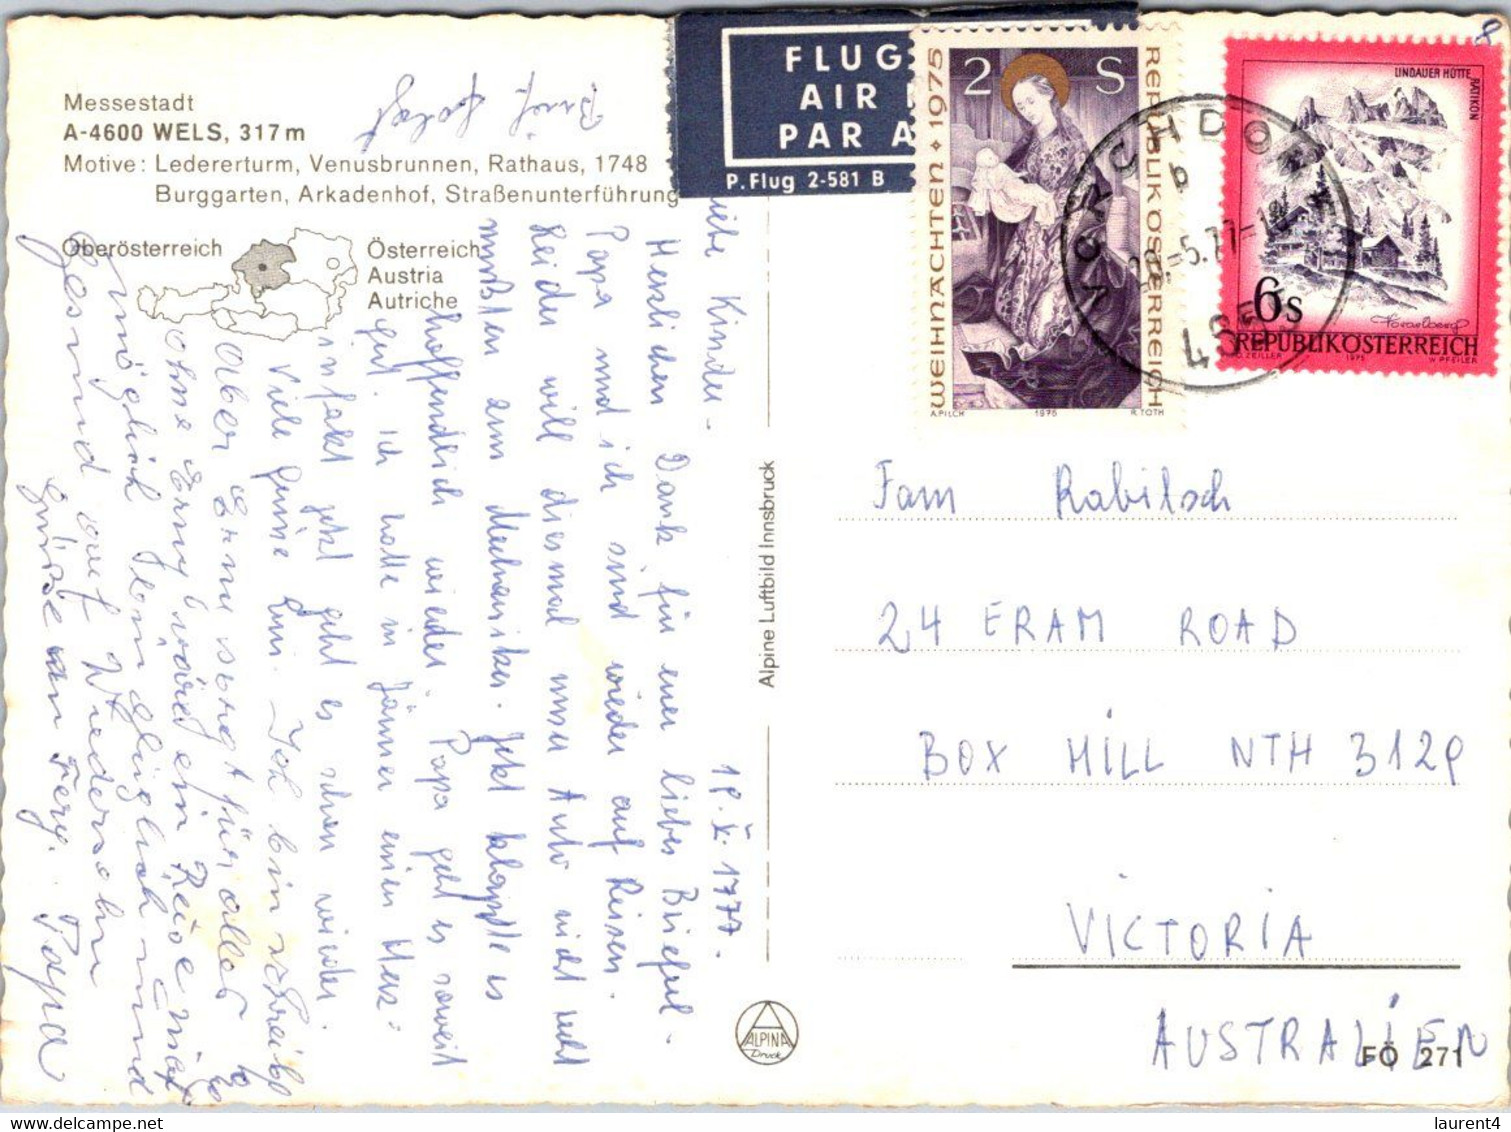 Messestadt
A-4600 WELS, 317 m
Motive: Ledererturm, Venusbrunnen, Rathaus, 1748
Burggarten, Arkadenhof, Straßenunterführung
Oberösterreich
Österreich
Austria
Autriche
Brief folgt
FLUG
AIR
PAR A
P. Flug 2-581 B
2 S
WEIHNACHTEN • 1975
REPUBLIK ÖSTERREICH
A. PILCH 1975 R. TOTH
LINDAUER HÜTTE
RÄTIKON
6s
Vorarlberg
REPUBLIK ÖSTERREICH
O. ZEILLER 1975 W. PFEILER
18. V. 1977.
iebe Kinder
Herzlichen Dank für euer liebes Brieferl.
Papa und ich sind wieder auf Reisen.
Leider will diesmal unser Auto nicht recht
mußten zum Mechaniker. Jetzt klappte es
hoffendlich wieder. Papa geht es soweit
gut. ich hatte in Jänner einen Herz-
infakt jetzt geht es schon wieder.
Viele Grüße Ich bin schreib
Aber sorgt für alles
ohne wäre ein Reise nicht
möglich und
Gesund auf Wiedersehn
Grüße an Papa
Alpine Luftbild Innsbruck
ALPINA
Druck
Fam Rabitsch
24 ERAM ROAD
BOX HILL NTH 3129
VICTORIA
AUSTRALIEN
FÖ 271
laurent4